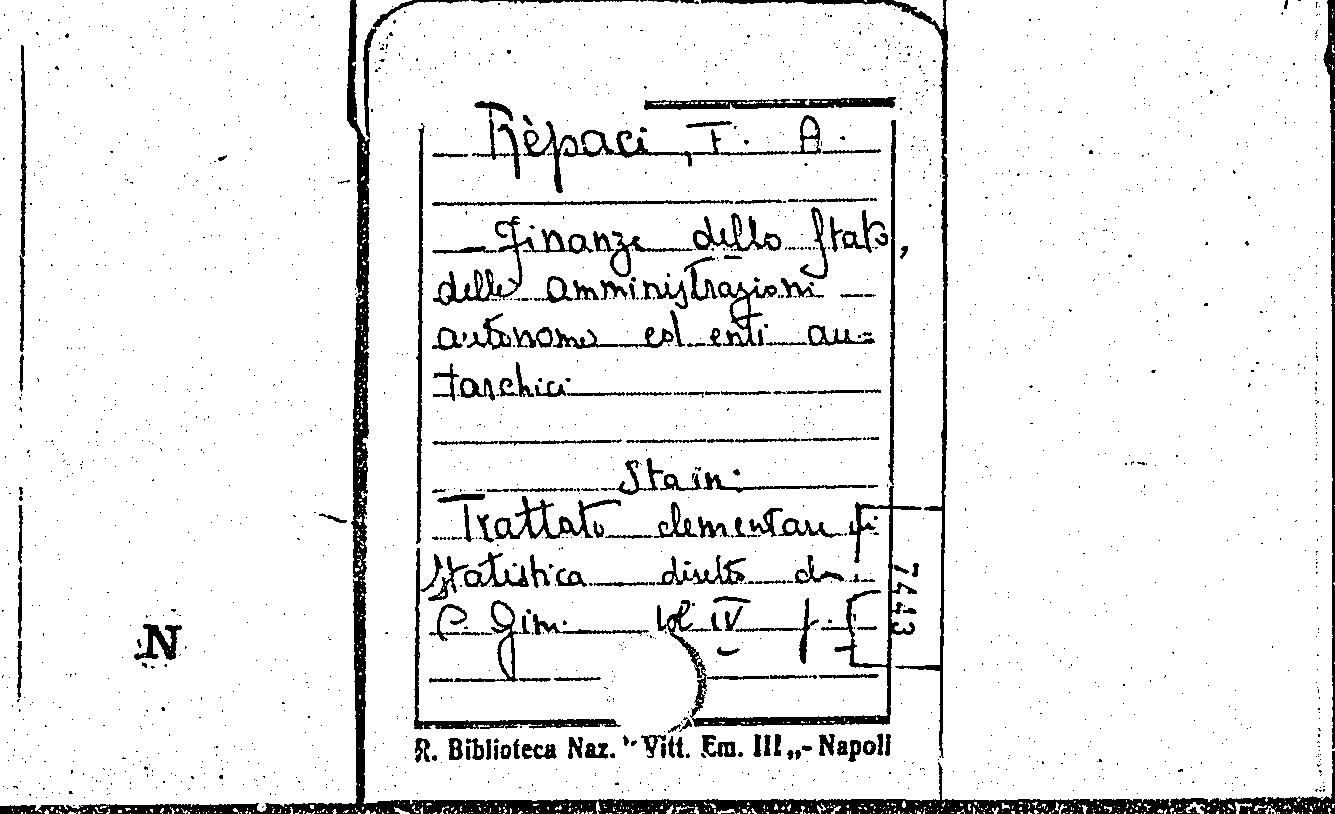 Rèpaci, F. A.
Finanze dello Stato,
delle amministrazioni
autonome ed enti au=
tarchici
Sta in:
Trattato elementare di
Statistica diretto da
C. Gini. Vol IV p.
7443
N
R. Biblioteca Naz. "Vitt. Em. III„- Napoli